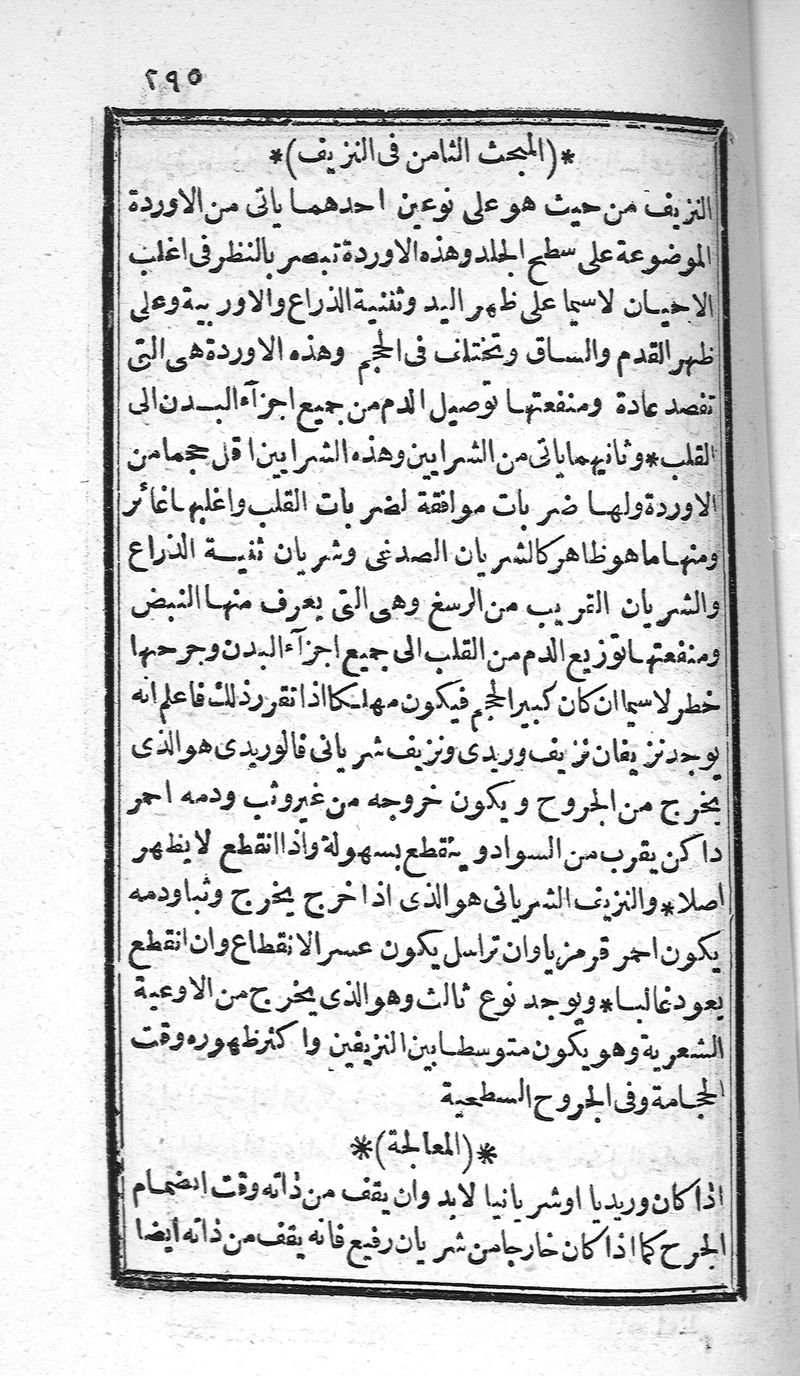 ٢٩٥
*(المبحث الثامن فى النزيف)*
النزيف من حيث هو على نوعين احدهما ياتى من الاوردة
الموضوعة على سطح الجلد وهذه الاوردة تبصر بالنظر فى اغلب
الاحيان لاسيما على ظهر اليد وثنية الذراع والاوربية وعلى
ظهر القدم والساق وتختلف فى الحجم وهذه الاوردة هى التى
تفصد عادة ومنفعتها توصيل الدم من جميع اجزآء البدن الى
القلب*وثانيهما ياتى من الشرايين وهذه الشرايين اقل حجما من
الاوردة ولها ضربات موافقة لضربات القلب واغلبها غائر
ومنها ما هو ظاهر كالشريان الصدغى وشريان ثنية الذراع
والشريان القريب من الرسغ وهى التى يعرف منها النبض
ومنفعتها توزيع الدم من القلب الى جميع اجزآء البدن وجرحها
خطر لاسيما ان كان كبير الحجم فيكون مهلكا اذا تقرر ذلك فاعلم انه
يوجد نزيفان نزيف وريدى ونزيف شريانى فالوريدى هو الذى
يخرج من الجروح ويكون خروجه من غير وثب ودمه احمر
داكن يقرب من السواد وينقطع بسهولة واذا انقطع لا يظهر
اصلا*والنزيف الشريانى هو الذى اذا خرج يخرج وثبا ودمه
يكون احمر قرمزيا وان تراسل يكون عسر الانقطاع وان انقطع
يعود غالبا*ويوجد نوع ثالث وهو الذى يخرج من الاوعية
الشعرية وهو يكون متوسطا بين النزيفين واكثر ظهوره وقت
الحجامة وفى الجروح السطحية
*(المعالجة)*
اذا كان وريديا او شريانيا لابد وان يقف من ذاته وقت انضمام
الجرح كما اذا كان خارجا من شريان رفيع فانه يقف من ذاته ايضا